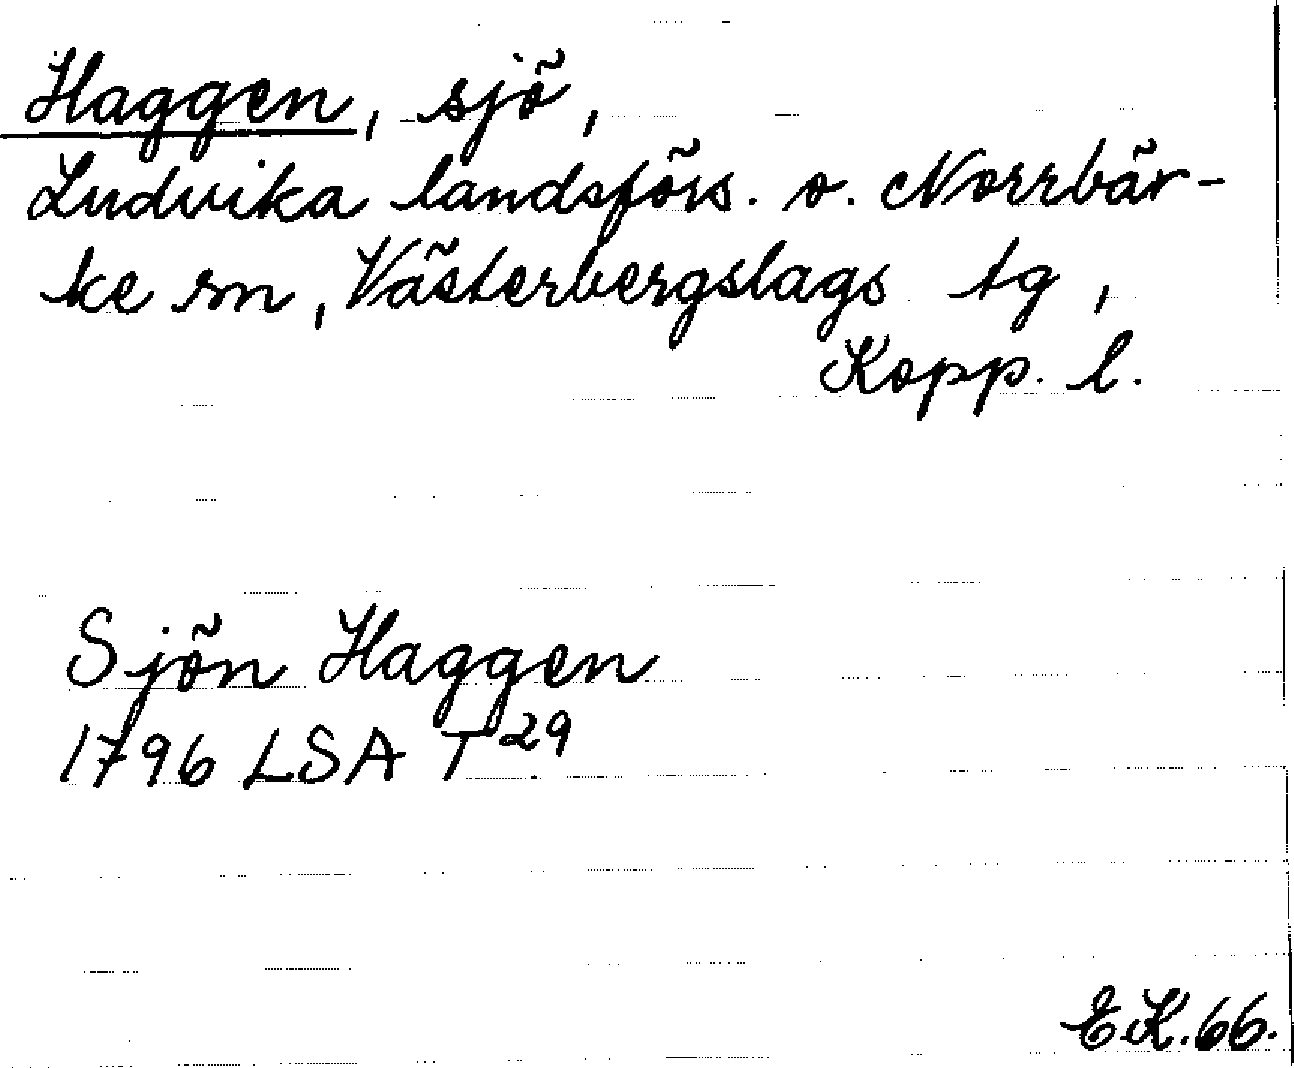 Haggen, sjö,
Ludvika landsförs. o. Norrbär-
ke sn, Västerbergslags tg,
Kopp. l.
Sjön Haggen
1796 LSA T 29
E.K. 66.